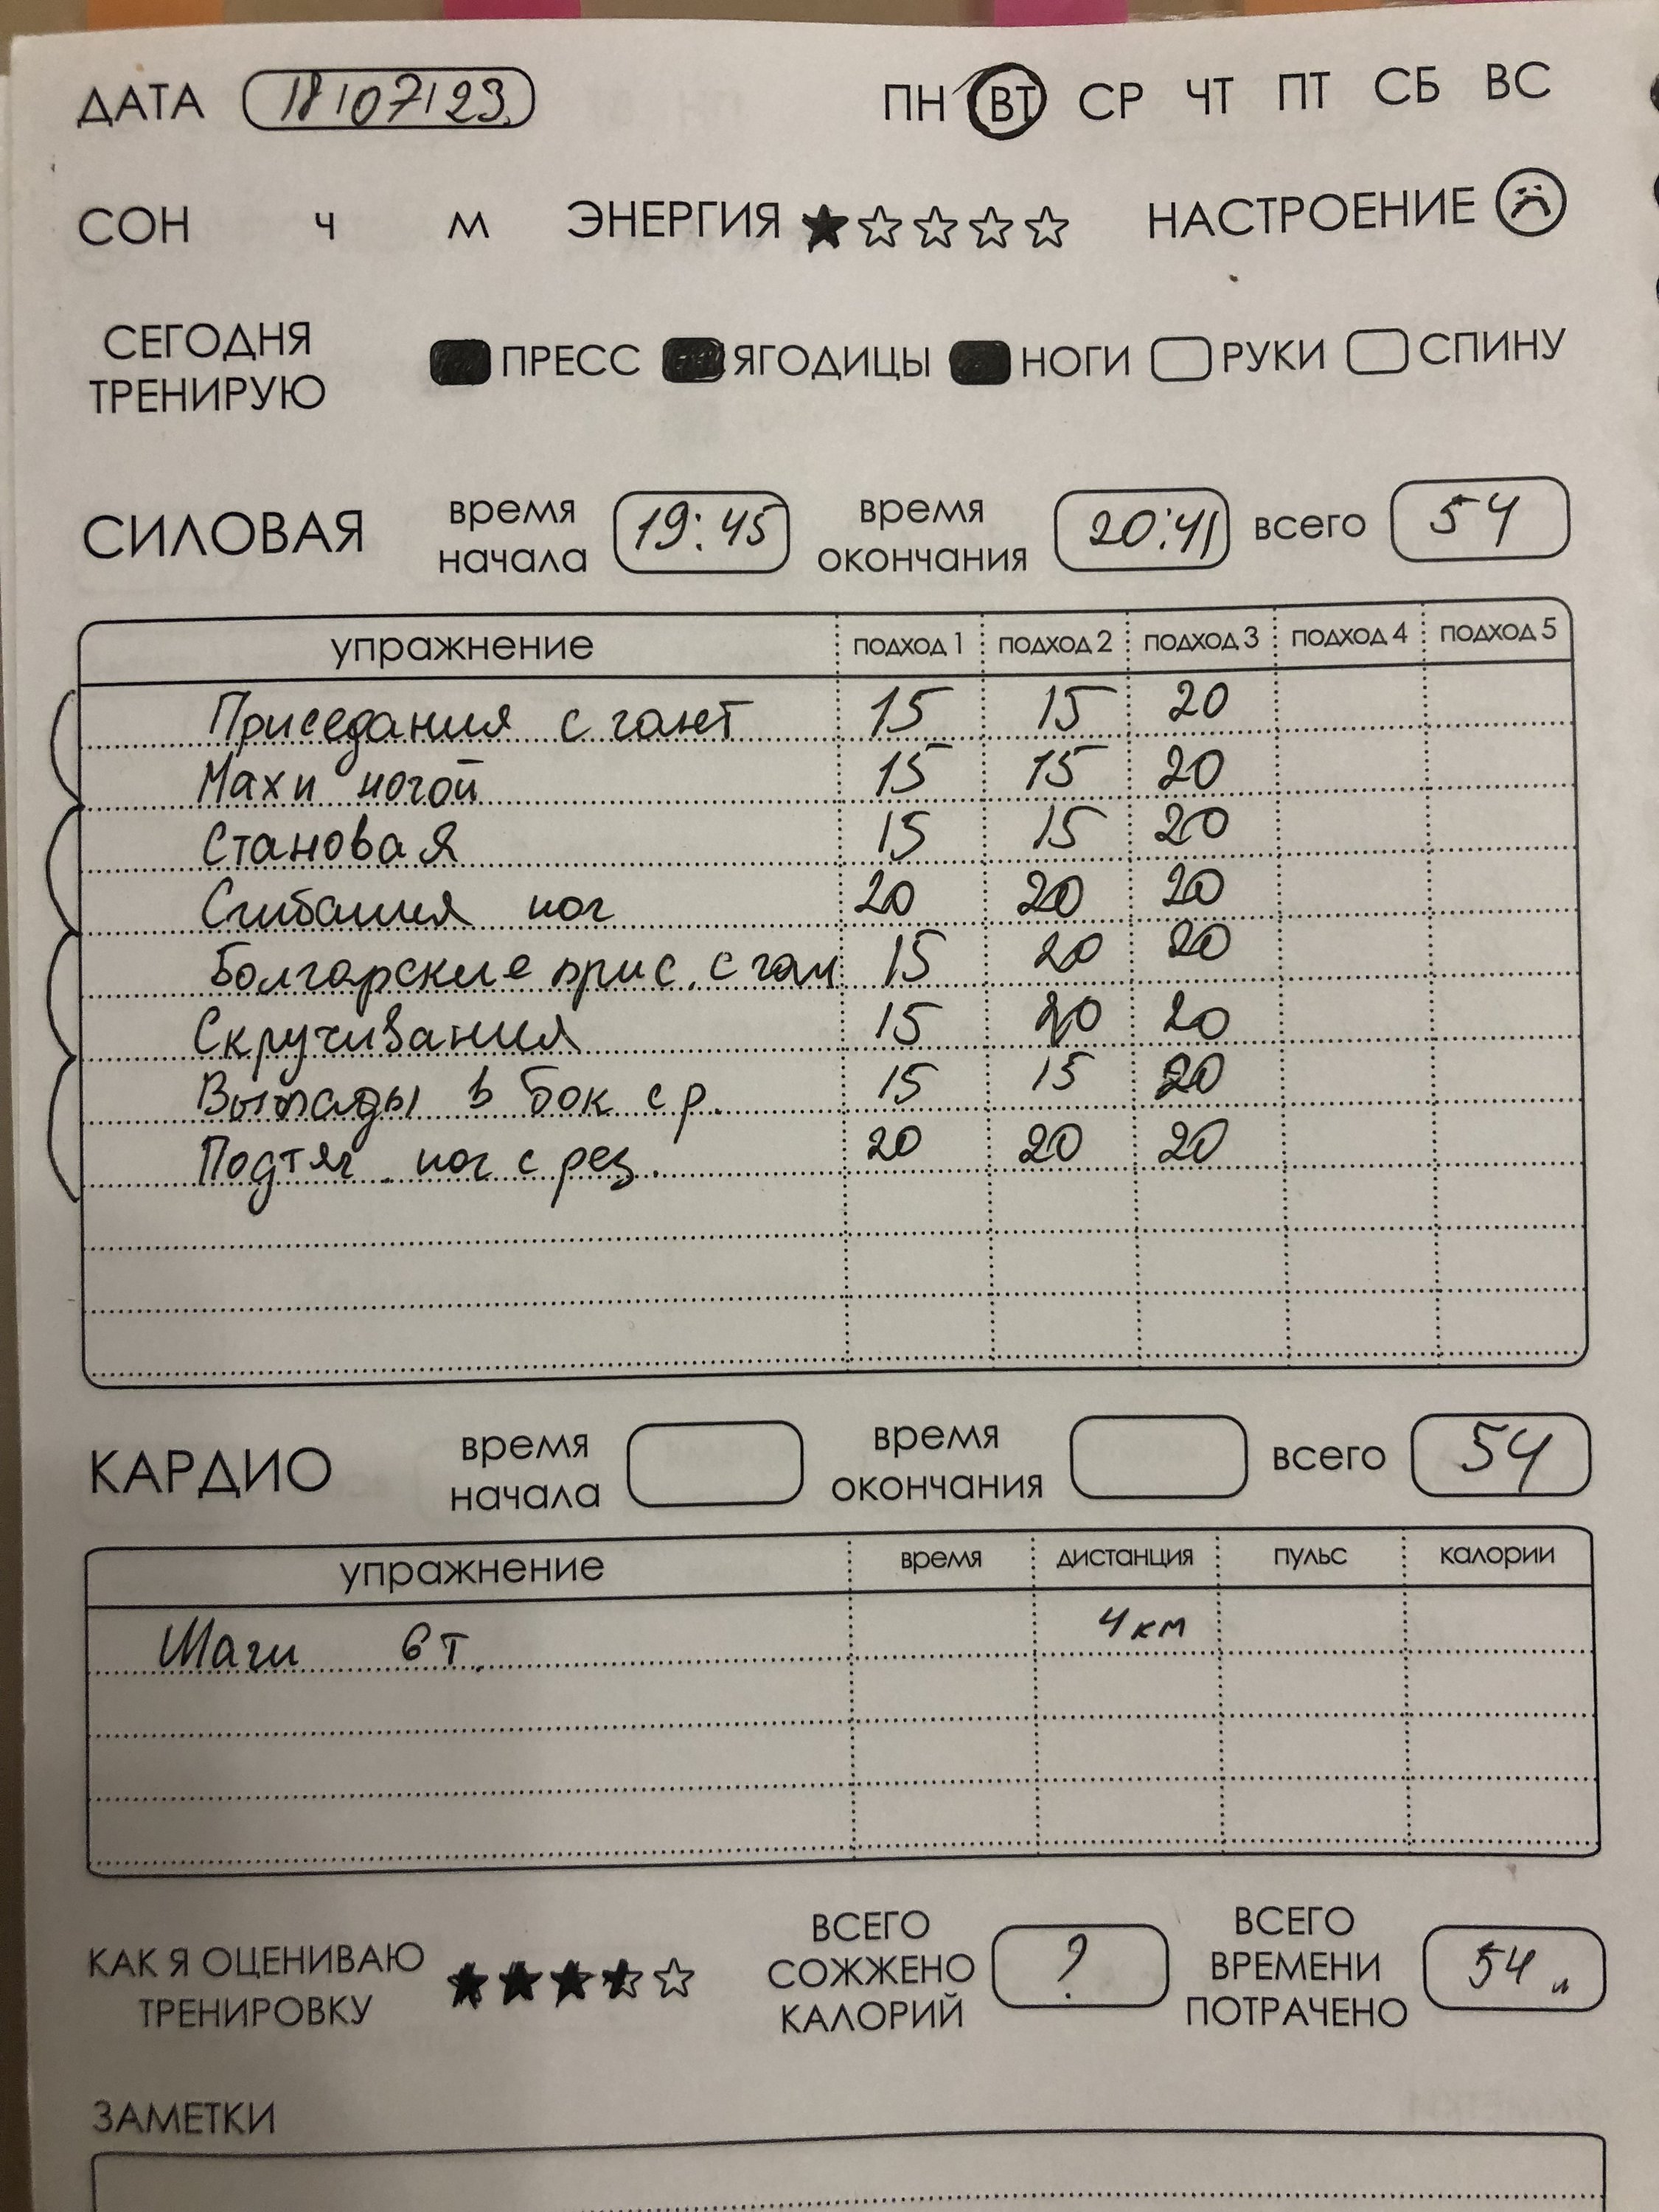 ДАТА 18/07/23 ПН ВТ СР ЧТ ПТ СБ ВС
СОН Ч М ЭНЕРГИЯ НАСТРОЕНИЕ
СЕГОДНЯ ТРЕНИРУЮ ПРЕСС ЯГОДИЦЫ НОГИ РУКИ СПИНУ
СИЛОВАЯ время начала 19:45 время окончания 20:41 всего 54
упражнение ПОДХОД 1 ПОДХОД 2 ПОДХОД 3 ПОДХОД 4 ПОДХОД 5
Приседания с гант 15 15 20
Махи ногой 15 15 20
Становая 15 15 20
Сгибания ног 20 20 20
Болгарские прис. с ган 15 20 20
Скручивания 15 20 20
Выпады в бок с р. 15 15 20
Подтяг. ног с рез. 20 20 20
КАРДИО время начала время окончания всего 54
упражнение время дистанция пульс калории
Шаги 6 т. 4 км
КАК Я ОЦЕНИВАЮ ТРЕНИРОВКУ ВСЕГО СОЖЖЕНО КАЛОРИЙ ? ВСЕГО ВРЕМЕНИ ПОТРАЧЕНО 54 м
ЗАМЕТКИ